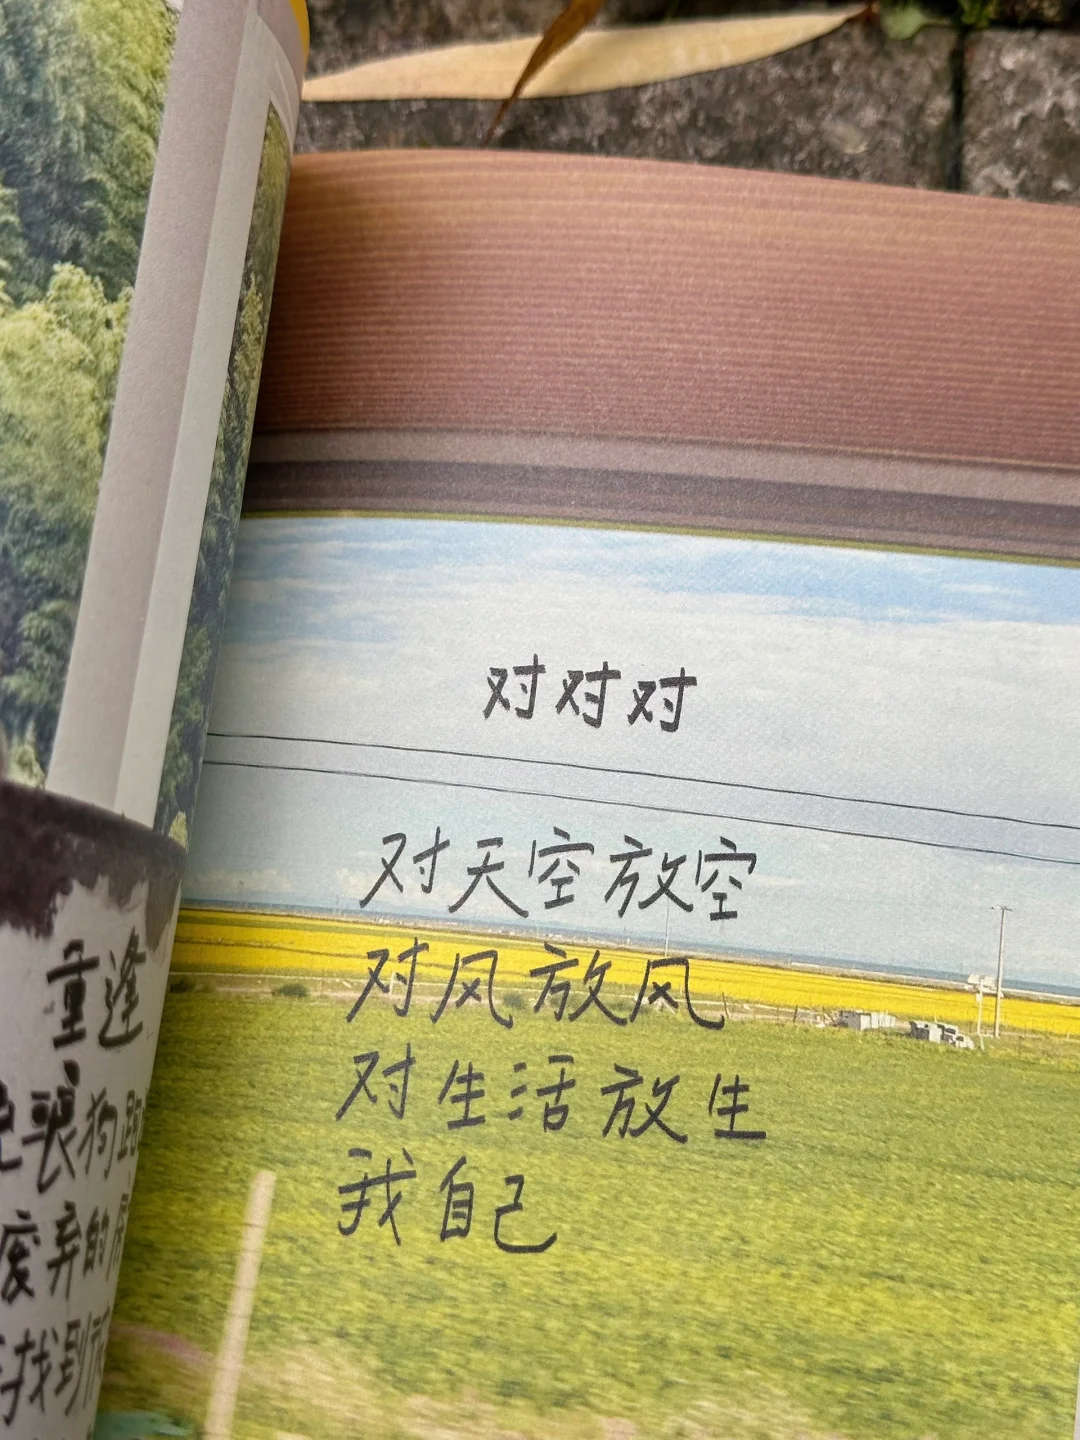 对对对
对天空放空
对风放风
对生活放生
我自己
重逢
丧狗跑
废弃的
找到